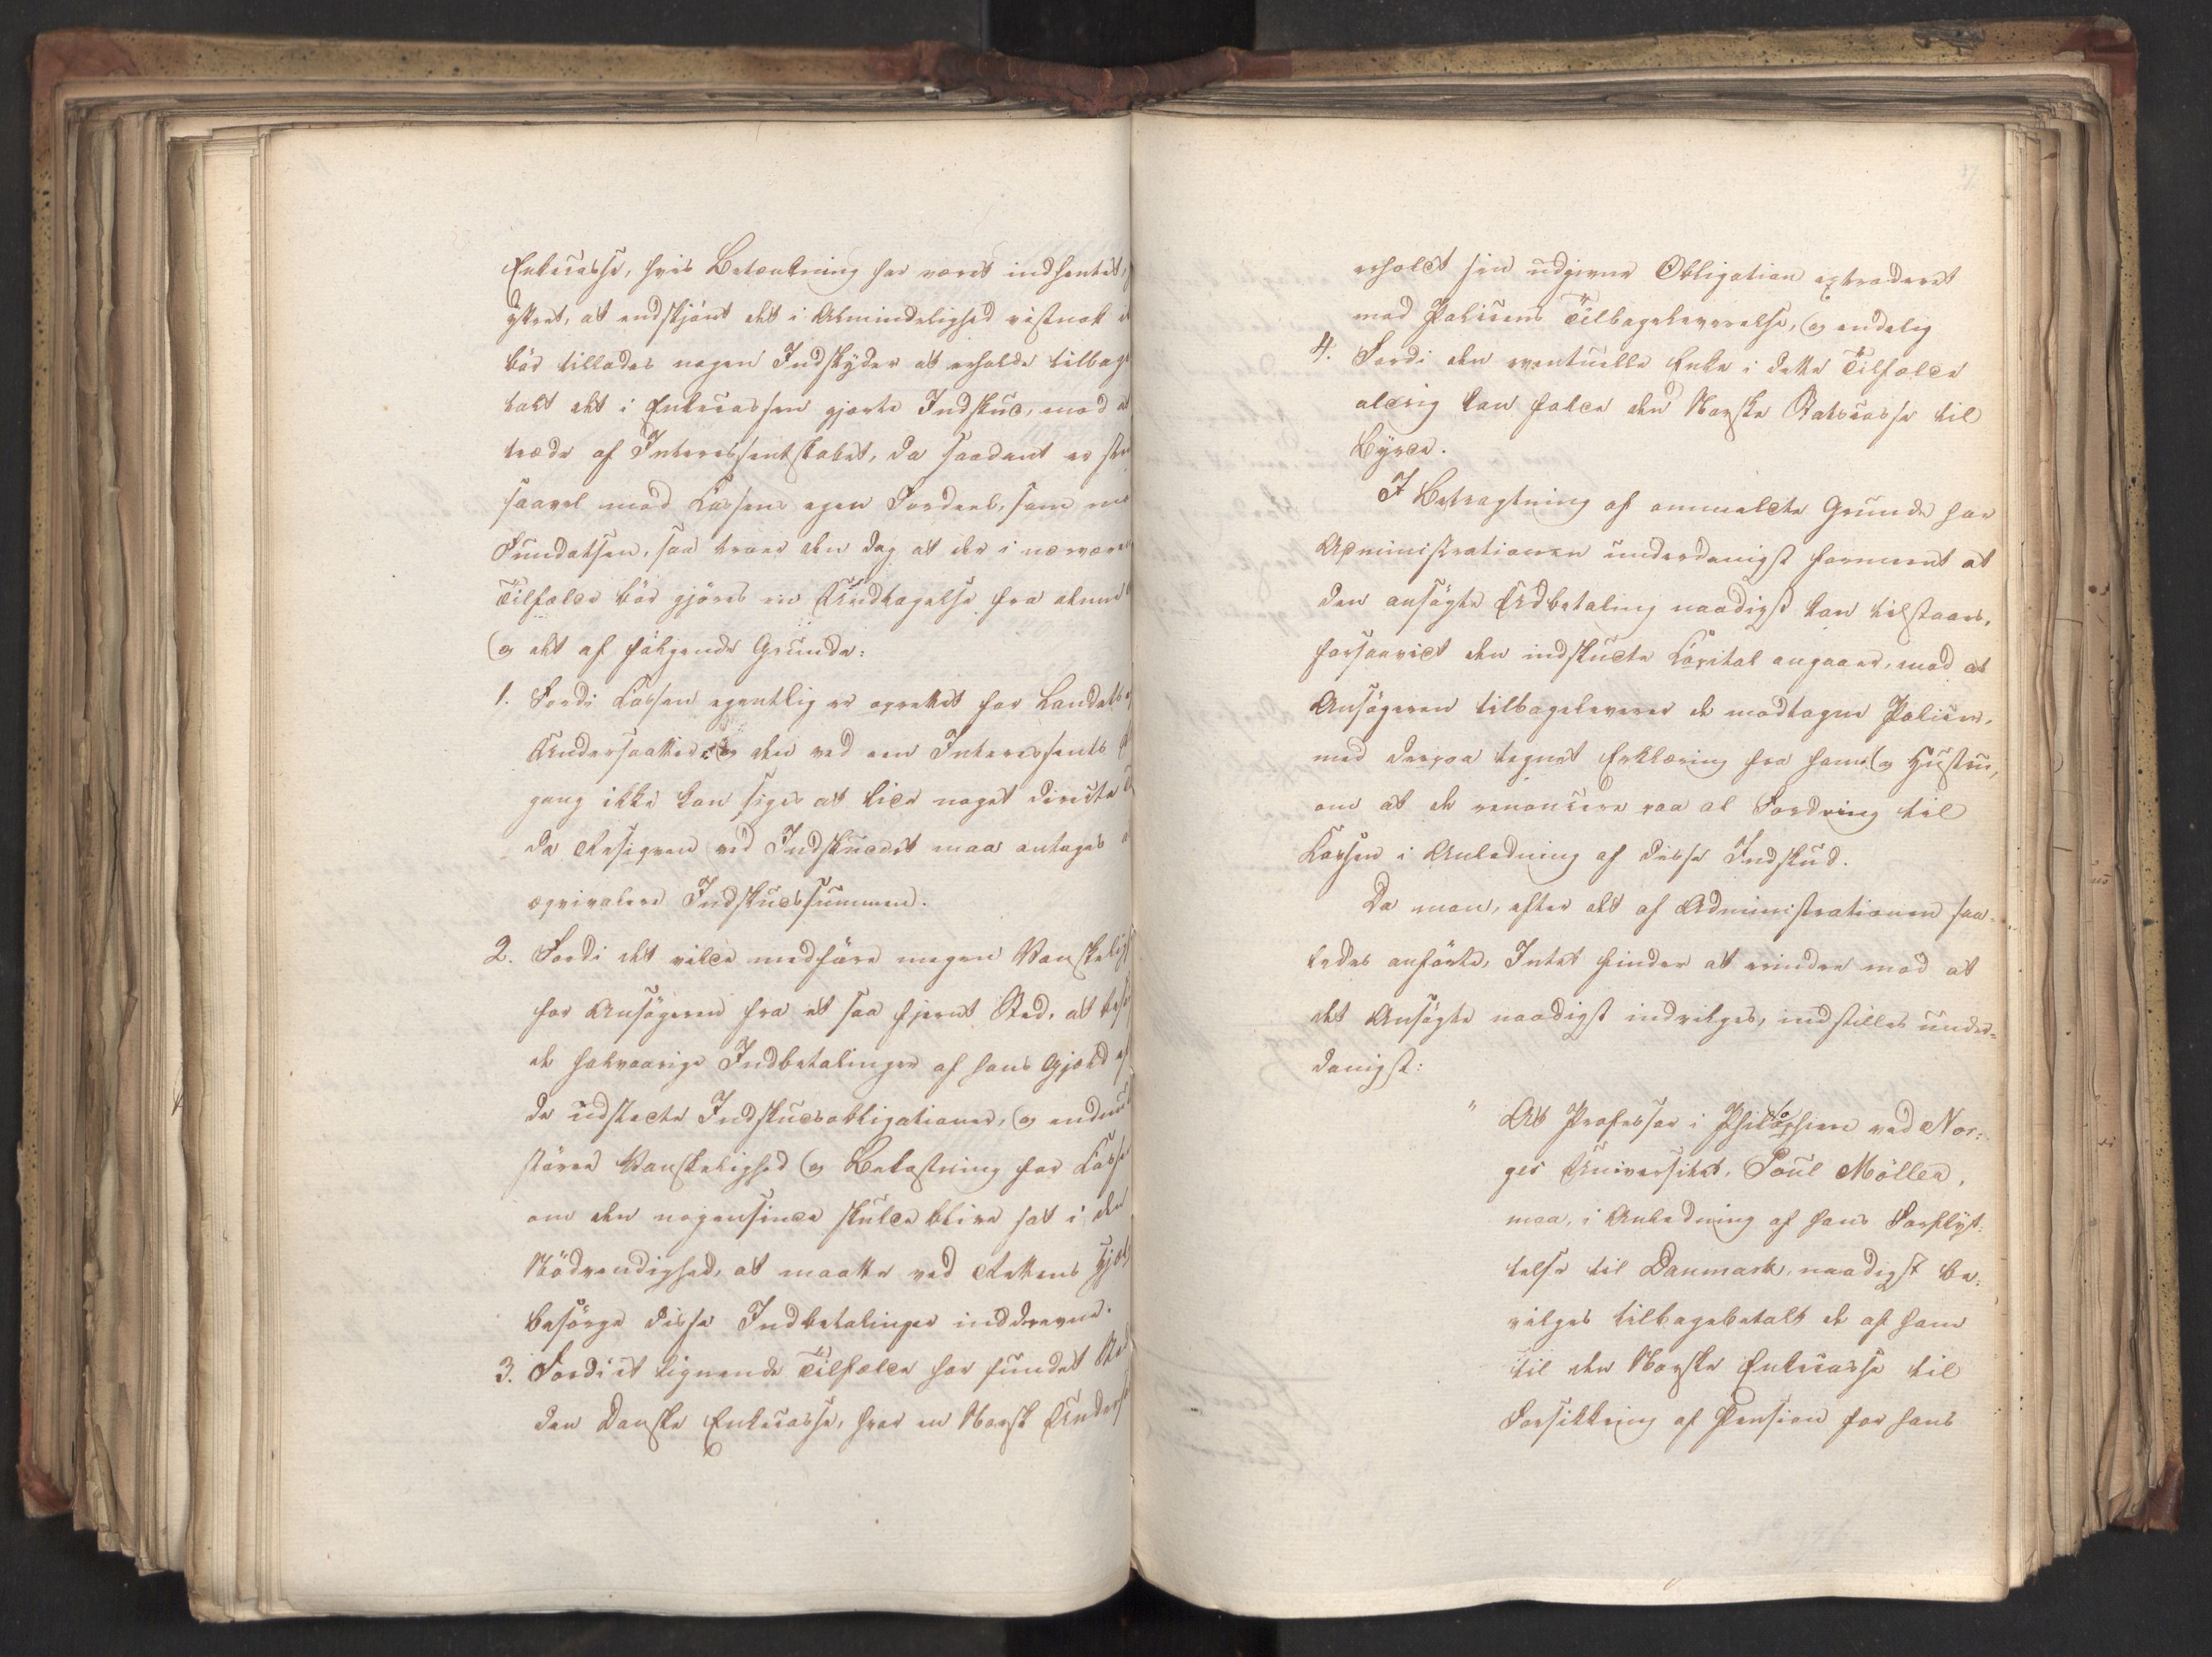 Enkecasse, hvis Betænkning har været indhentet,
yttret, at endskjönt det i Almindelighed vistnok
bör tillades nogen Indskyder at erholde tilbage
talt det i Enkecassen gjorte Indskud, mod at
træde af Interessentskabet, da saadant er
saavel mod Cassens egen Fordeel, som mod
Fundatsen, saa troer den dog at der i nærvære
Tilfælde bör gjöres en Undtagelse fra
og det af fölgende Grunde:
1. Fordi Cassen egentlig er oprettet for Landets
Undersaatter og den ved een Interessents
gang ikke kan siges at lide noget directe
da Risiqven ved Indskudet maa antages
æqvivalere Indskudssummen.
2. Fordi det vilde medföre megen Vanskelig
for Ansögeren fra et saa fjernt Sted, at
de halvaarige Indbetalinger af hans Gjæld
de udstedte Indskudsobligationer, og endnu
större Vanskelighed og Belastning for Casse
om den nogensinde skulde blive sat i den
Nödvendighed, at maatte ved Rettens Hjælp
besörge disse Indbetalinger inddrevne.
3. Fordi et lignende Tilfælde har fundet Sted
den Danske Enkecasse, hvor en Norsk Unders
erholdt sin udgivne Obligation extraderet
mod Policens Tilbageleverelse, og endelig
4. Fordi den eventuelle Enke i dette Tilfælde
aldrig kan falde den Norske Statscasse til
Byrde.
I Betragtning af anmeldte Grunde har
Administrationen underdanigst formeent at
den ansögte Udbetaling naadigst kan tilstaaes,
forsaavidt den indskudte Capital angaaer, mod at
Ansögeren tilbageleverer de modtagne Policer,
med derpaa tegnet Erklæring fra ham og Hustru,
om at de renoncere paa al Fordring til
Cassen i Anledning af disse Indskud.
Da man, efter det af Administrationen saa-
ledes anförte, Intet finder at erindre mod at
det Ansögte naadigst indvilges, indstilles under-
danigst:
" At Professor i Philosophien ved Nor-
ges Universitet, Poul Möller,
maa, i Anledning af hans Forflyt-
telse til Danmark, naadigst be-
vilges tilbagebetalt de af ham
til den Norske Enkecasse til
Forsikkring af Pension for hans